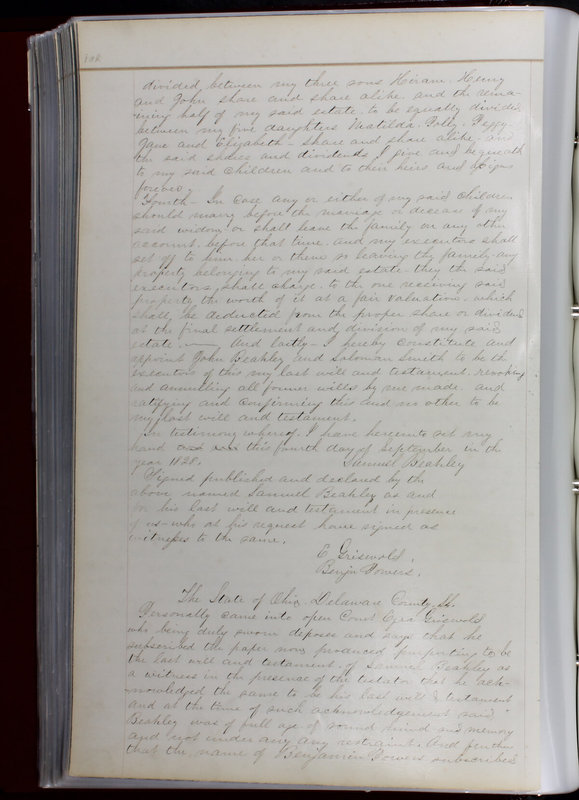 divided between my three sons Hiram. Henry
and John share and share alike, and the rema-
ning half of my said estate. to be equally divided
between my five daughters Matilda. Polly. Peggy-
Jane and Elizabeth - share and share alike, and
the said shares and dividends I give and bequeath
to my said children and to their heirs and assigns
forever.
Fourth - In case any or either of my said children
should marry before the marriage or decease of my
said widow, or shall leave the family on any other
account, before that time. and my executors shall
set off to him. her or them so leaving the family any
property belonging to my said estate. they the said
executors, shall charge. to the one receiving said
property the worth of it at a fair valuation. which
shall, be deducted from the proper share or dividend
at the final settlement and division of my said
estate. — And lastly - I hereby constitute and
appoint John Beahley and Soloman Smith to be th
executors of this my last will and testament. revoking
and annulling all former wills by me made. and
ratifying and confirming this and no other to be
my last will and testament.
In testimony whereof. I have hereunto set my
hand this fourth day of September in the
year 1828. Samuel Beahley
Signed published and declared by the
above named Samuel Beahley as and
for his last will and testament in presence
of us - who at his request have signed as
witnesses to the same.
E. Griswold.
Benjn Powers.
The State of Ohio Delaware County Ss.
Personally came into open Court Ezra Griswold
who being duly sworn deposes and says that he
subscribed the paper now produced purporting to be
the last will and testament. of Samuel Beahley as
a witness in the presence of the testator that he ack-
nowledged the same to be his last will & testament
and at the time of such acknowledgement said
Beahley was of full age of sound mind and memory
and not under any any restraint. And further
that the name of Benjamin Powers subscribed